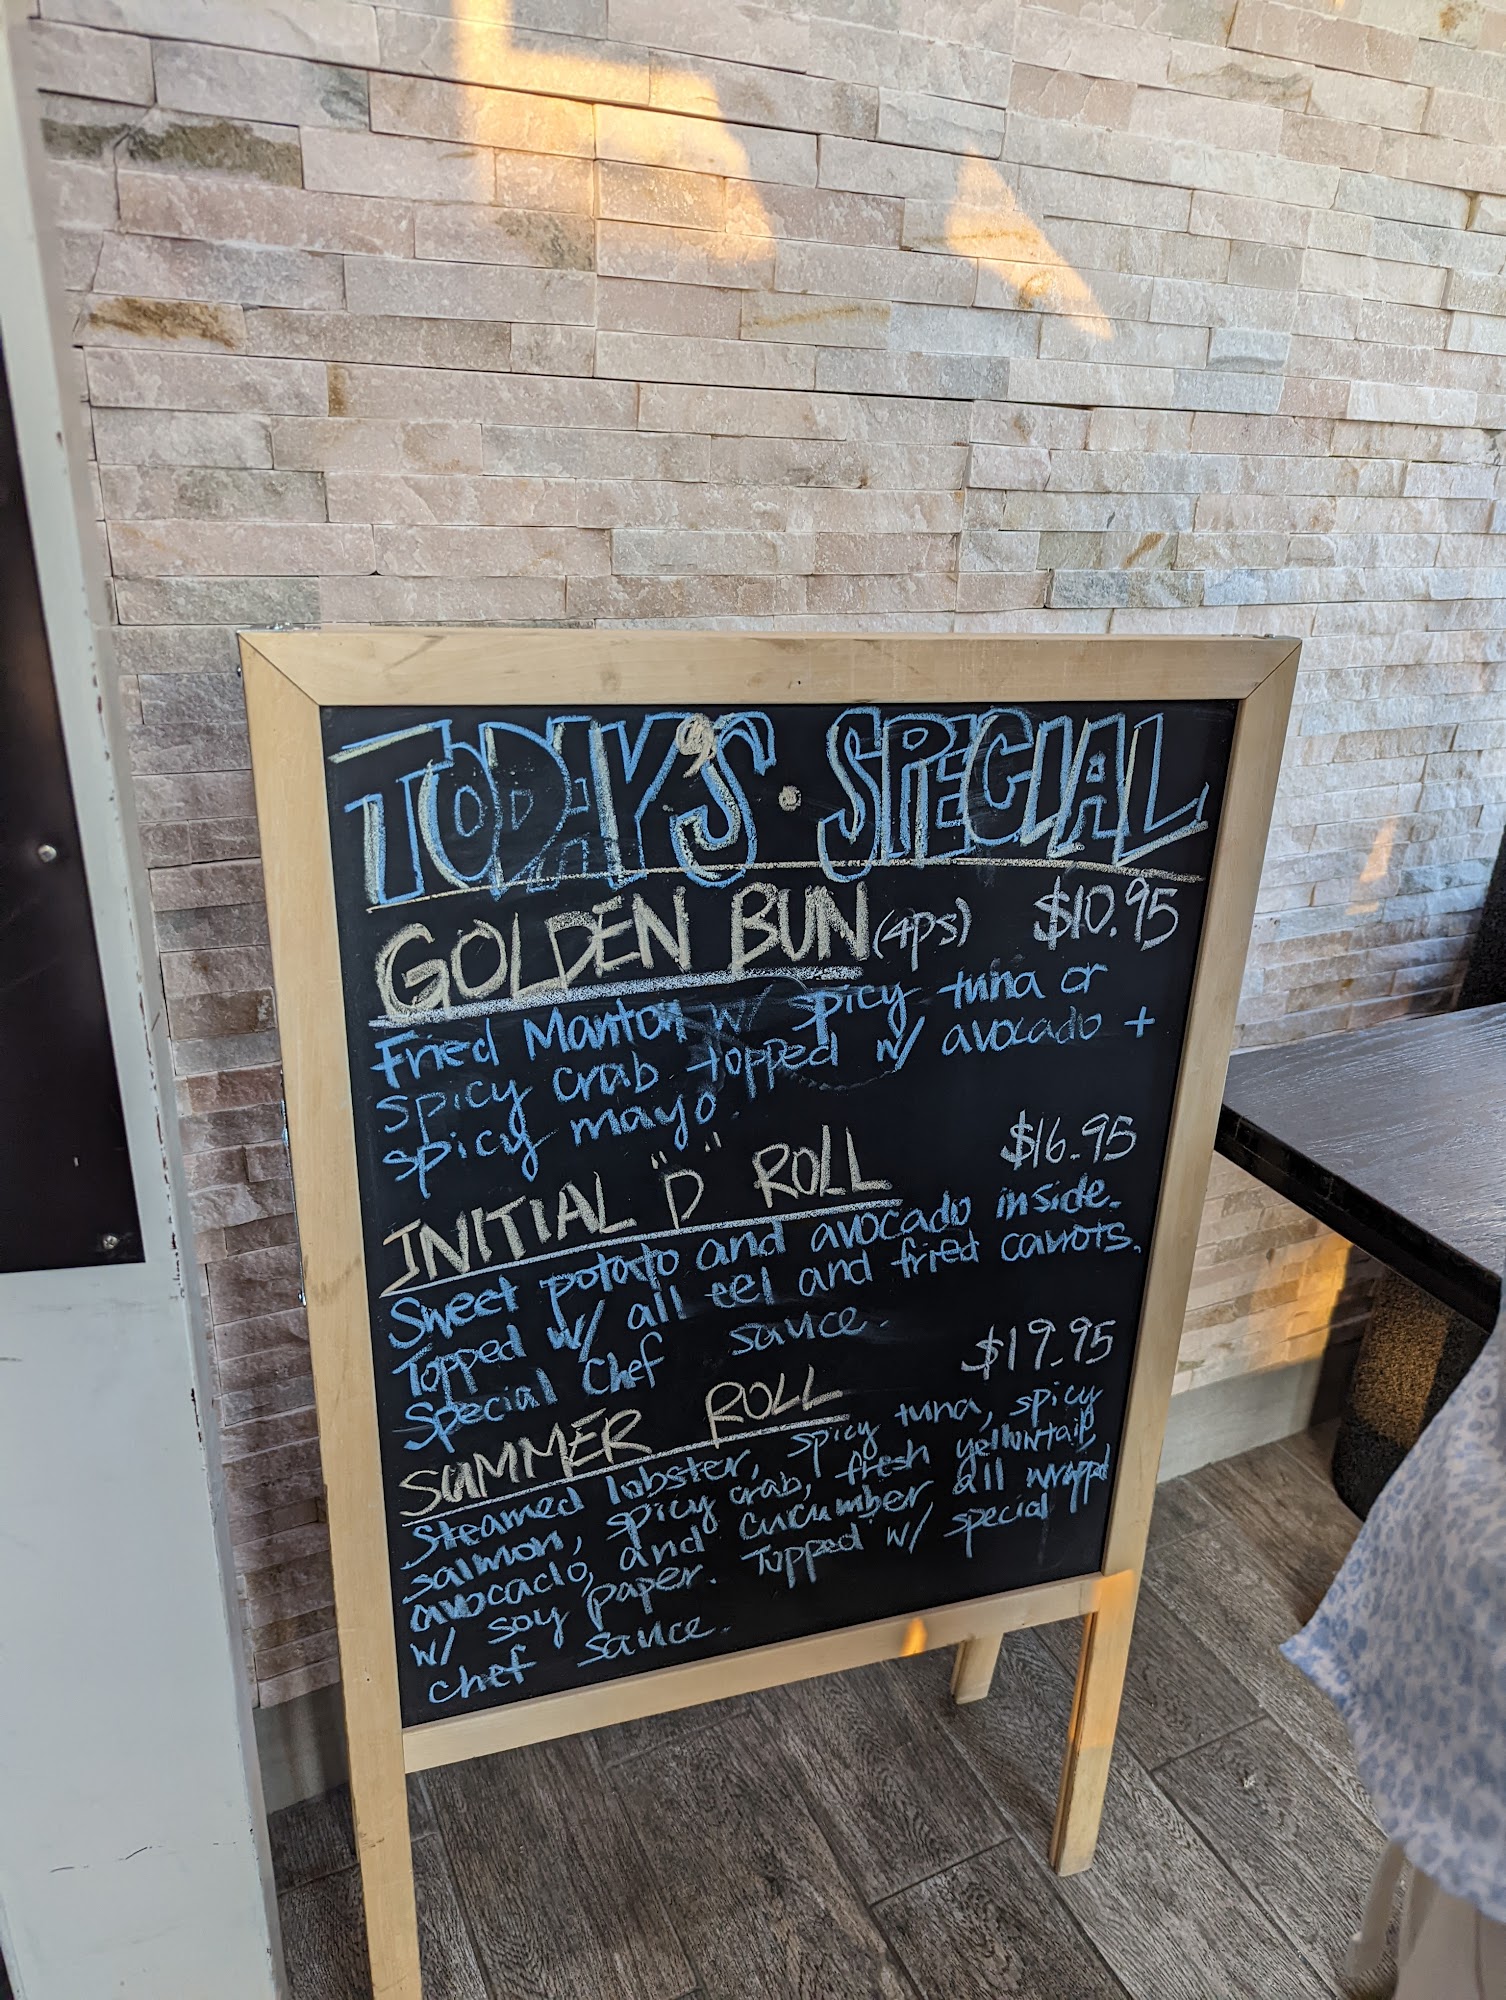 TODAY'S · SPECIAL
GOLDEN BUN (4ps) $10.95
Fried Mantou w/ spicy tuna or
spicy crab topped w/ avocado +
spicy mayo.
INITIAL "D" ROLL $16.95
Sweet potato and avocado inside.
Topped w/ all eel and fried carrots.
Special Chef sauce.
SUMMER ROLL $19.95
Steamed lobster, spicy tuna, spicy
salmon, spicy crab, fresh yellowtail,
avocado, and cucumber all wrapped
w/ soy paper. Topped w/ special
chef sauce.